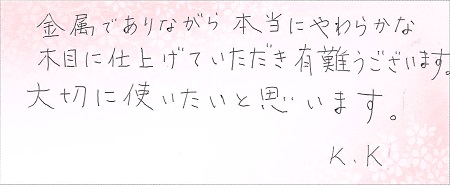 金属でありながら本当にやわらかな
木目に仕上げていただき有難うございます。
大切に使いたいと思います。
K.K